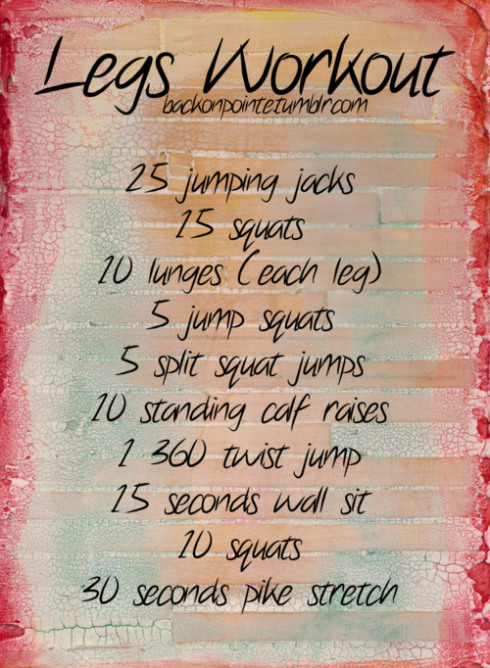 Legs Workout
backonpointe.tumblr.com
25 jumping jacks
15 squats
10 lunges (each leg)
5 jump squats
5 split squat jumps
10 standing calf raises
1 360 twist jump
15 seconds wall sit
10 squats
30 seconds pike stretch